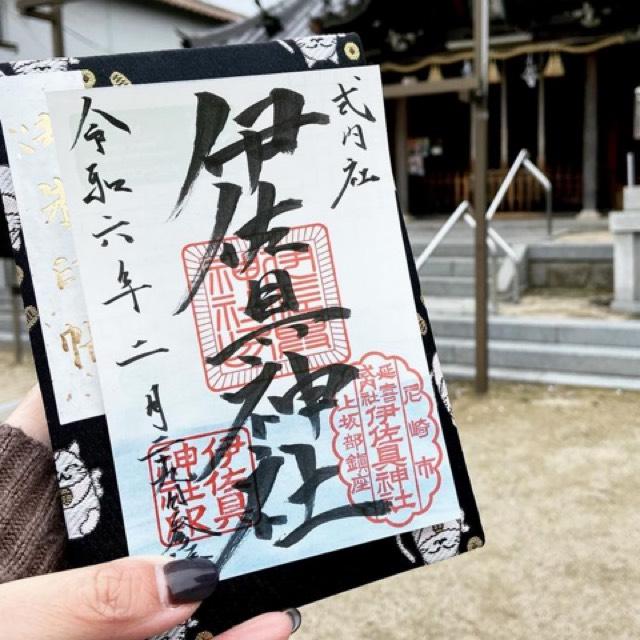 式内社
伊佐具神社
令和六年二月
尼崎市
延喜
式内社
伊佐具神社
上坂部鎮座
伊佐具
神社